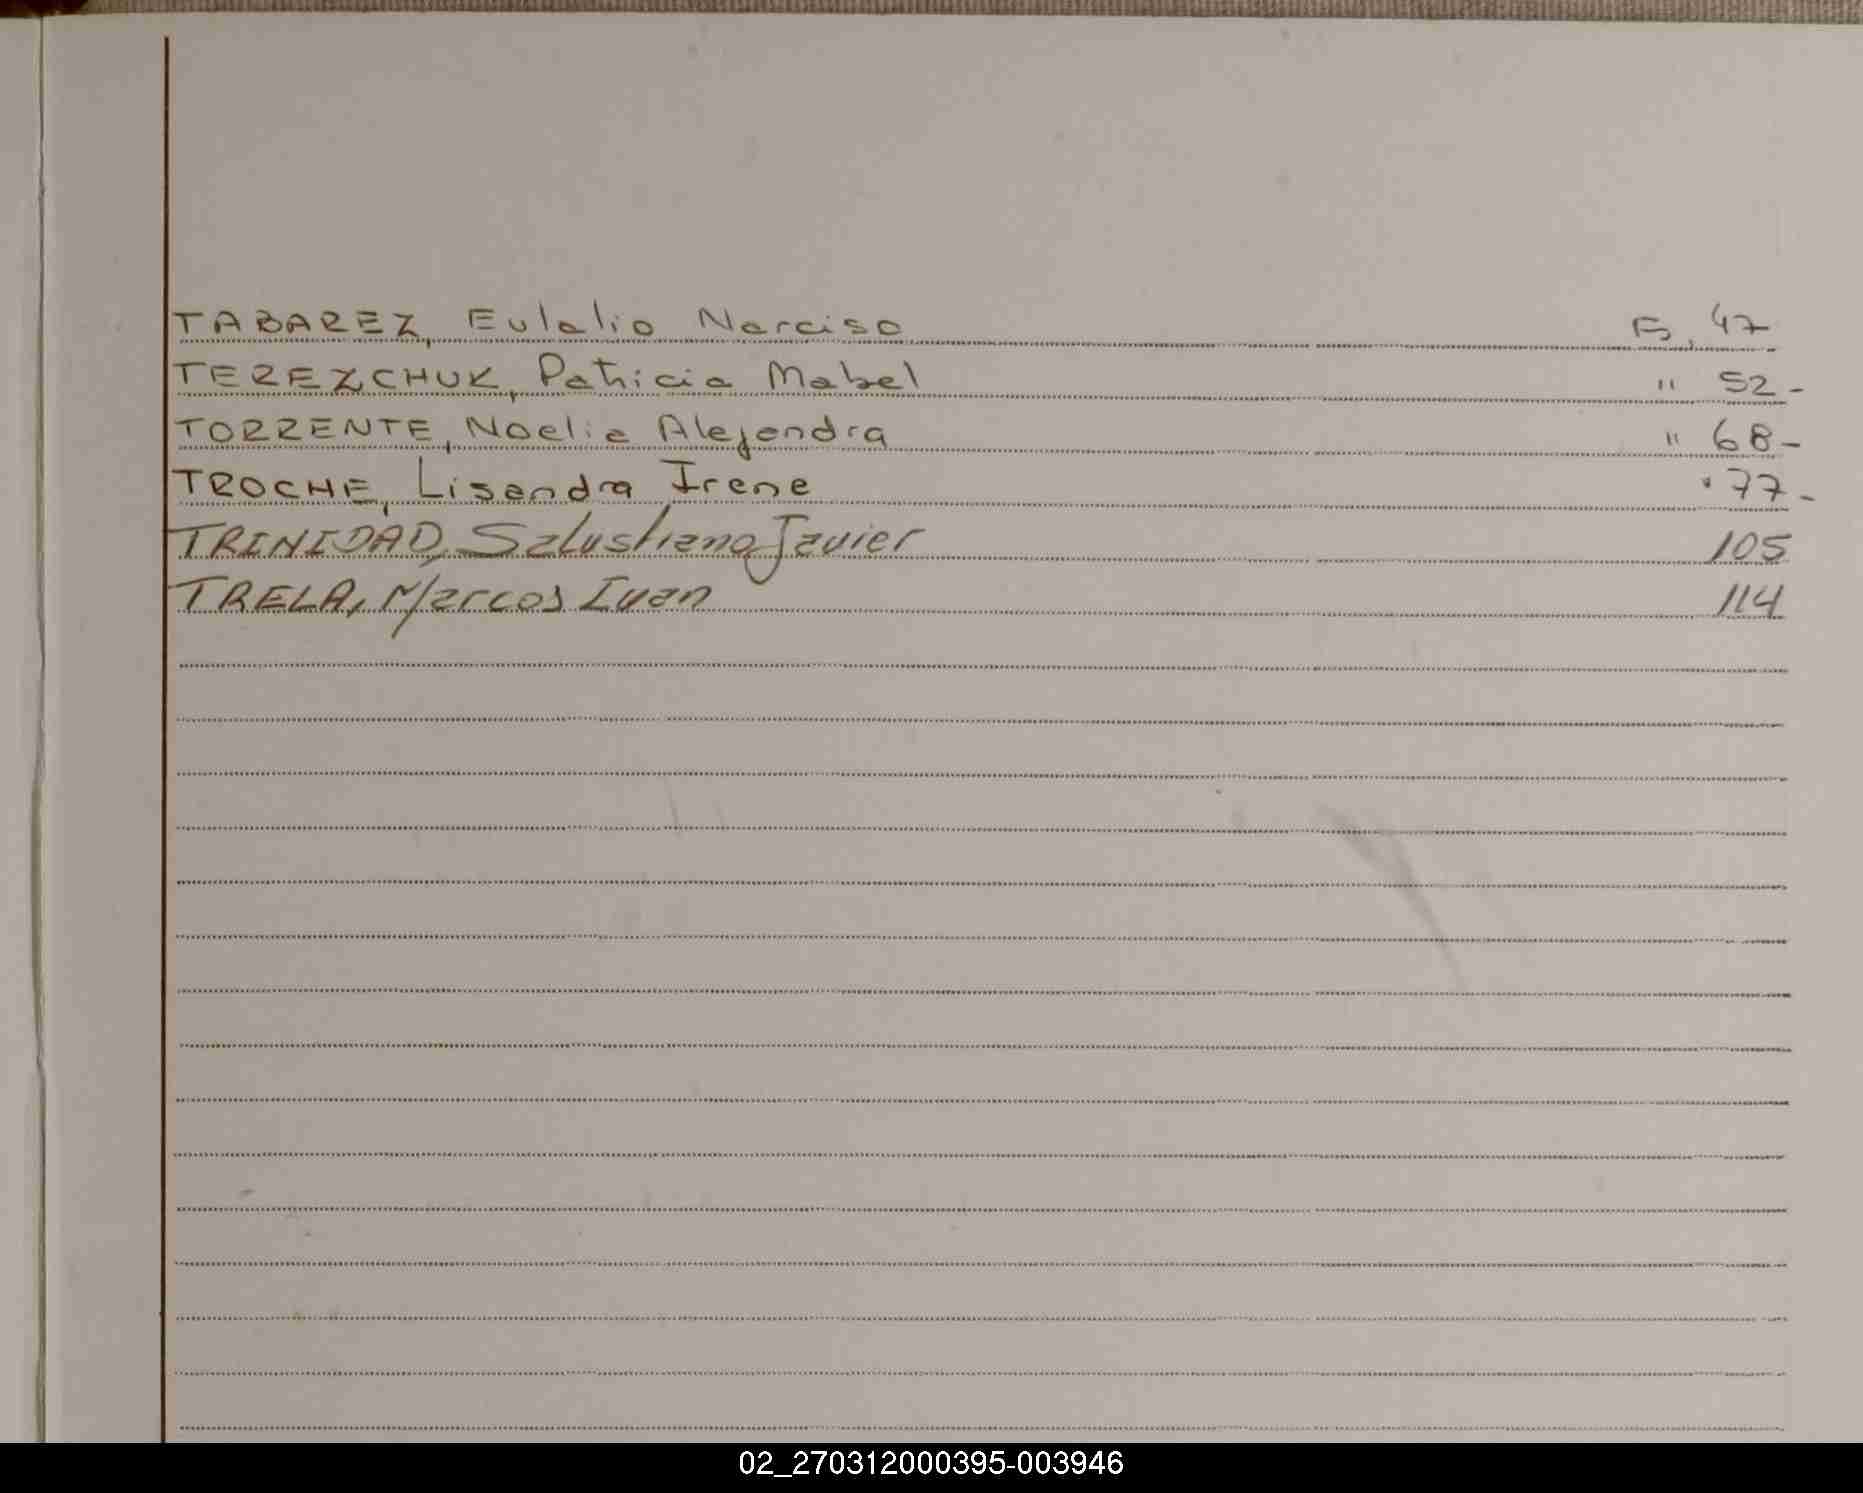 TABAREZ, Eulalio Narciso Fs, 47
TEREZCHUK, Patricia Mabel " 52-
TORRENTE, Noelia Alejandra " 68-
TROCHE, Lisandra Irene " 77-
TRINIDAD, Salustiano Javier 105
TRELA, Marcos Ivan 114
02_270312000395-003946